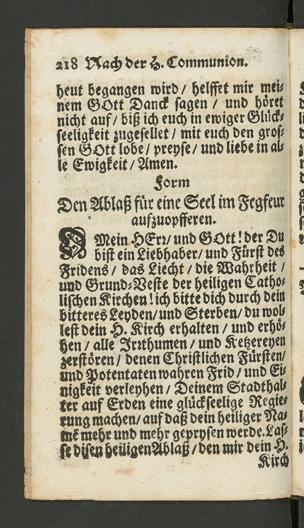 218 Nach der H. Communion.
heut begangen wird / helffet mir mei-
nem GOtt Danck sagen / und höret
nicht auf / biß ich euch in ewiger Glück-
seeligkeit zugesellet / mit euch den gros-
sen GOtt lobe / preyse / und liebe in al-
le Ewigkeit / Amen.
Form
Den Ablaß für eine Seel im Fegfeur
aufzuopfferen.
O Mein HErr / und GOtt! der Du
bist ein Liebhaber / und Fürst des
Fridens / das Liecht / die Wahrheit /
und Grund-Veste der heiligen Catho-
lischen Kirchen! ich bitte dich durch dein
bitteres Leyden / und Sterben / du wol-
lest dein H. Kirch erhalten / und erhö-
hen / alle Irrthumen / und Ketzereyen
zerstören / denen Christlichen Fürsten /
und Potentaten wahren Frid / und Ei-
nigkeit verleyhen / Deinem Stadthal-
ter auf Erden eine glückseelige Regie-
rung machen / auf daß dein heiliger Na-
mē mehr und mehr geprysen werde. Las-
se disen heiligen Ablaß / den mir dein H.
Kirch